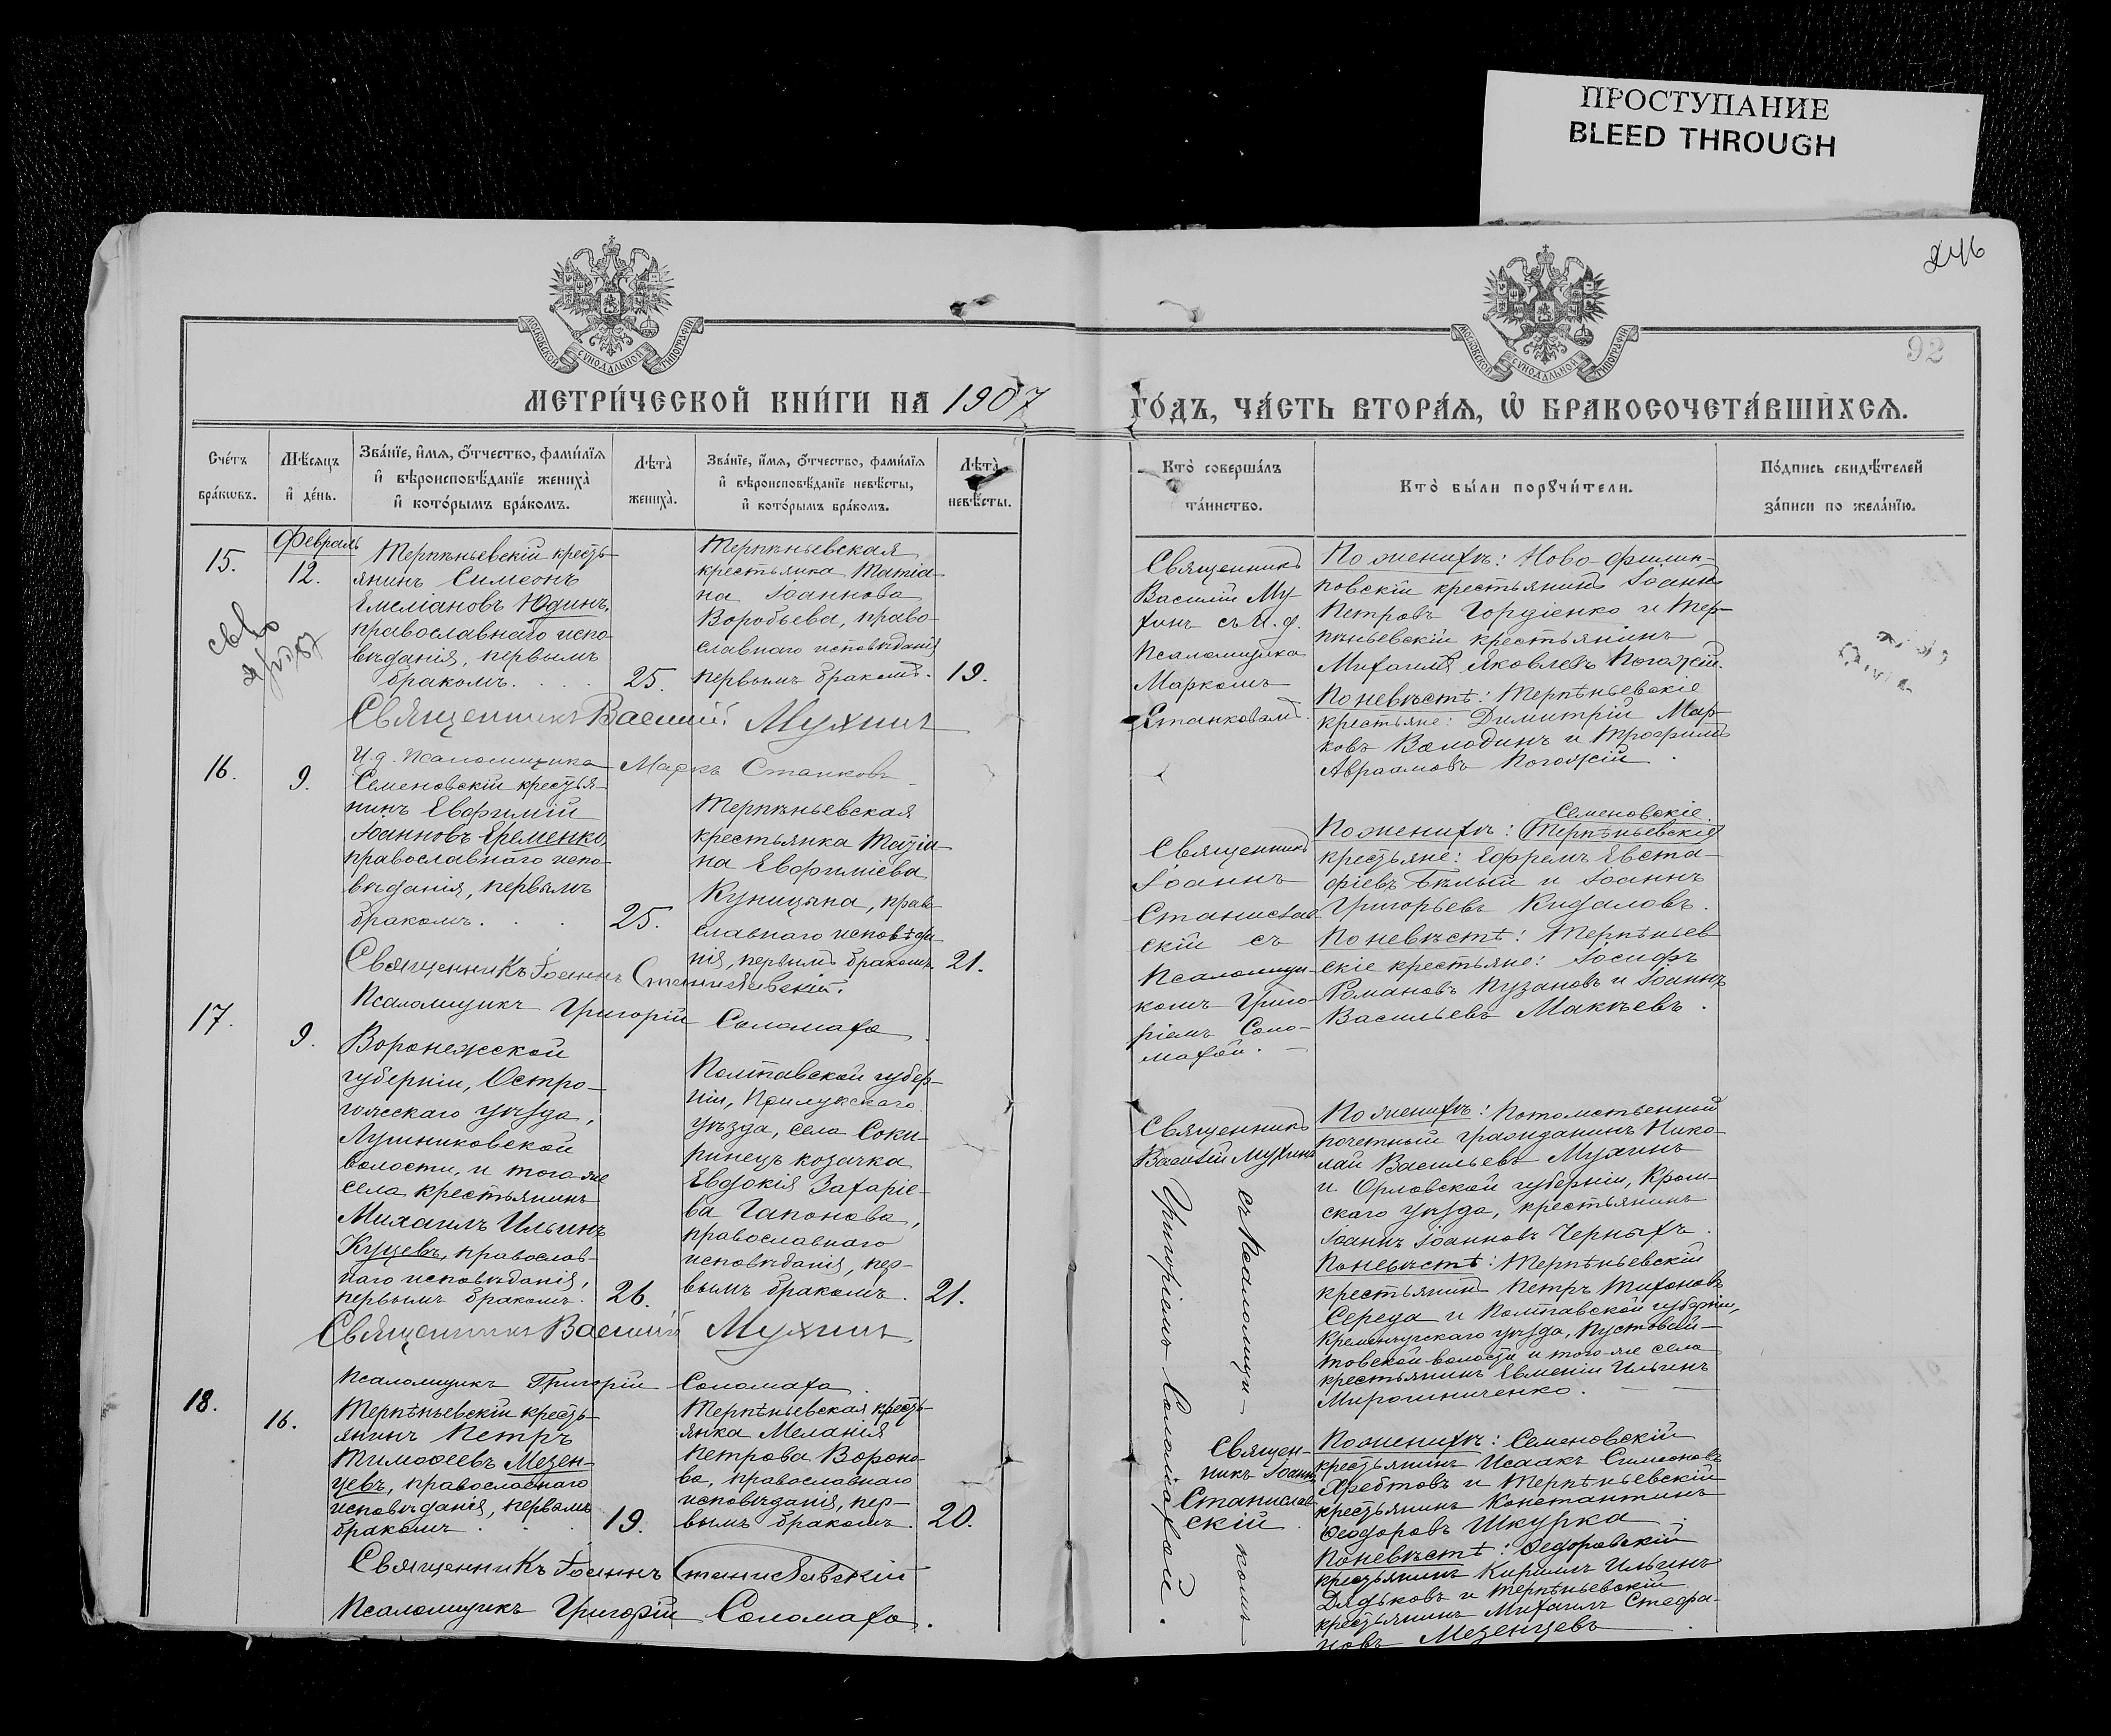 ПРОСТУПАНИЕ
BLEED THROUGH
246
92
МОСКОВСКОЙ СѴНОДАЛЬНОЙ ТИПОГРАФІИ
МОСКОВСКОЙ СѴНОДАЛЬНОЙ ТИПОГРАФІИ
МЕТРИ́ЧЕСКОЙ КНИ́ГИ НА 1907
ГО́ДЪ, ЧА́СТЬ ВТОРА́Ѧ, Ѡ҆ БРАКОСОЧЕТА́ВШИХСѦ.
Сче́тъ
бра́кѡвъ.
Мѣ́сѧцъ
и҆ де́нь.
Зва́нїе, и҆́мѧ, ѻ҆́тчество, фами́лїѧ
и҆ вѣроисповѣ́данїе жениха̀
и҆ кото́рымъ бра́комъ.
Лѣта̀
жениха̀.
Зва́нїе, и҆́мѧ, ѻ҆́тчество, фами́лїѧ
и҆ вѣроисповѣ́данїе невѣ́сты,
и҆ кото́рымъ бра́комъ.
Лѣта̀
невѣ́сты.
Кто̀ соверша́лъ
та́инство.
Кто̀ бы́ли порꙋчи́тели.
По́дпись свидѣ́телей
за́писи по жела́нїю.
15.
Февраль
12.
Терпѣньевскій кресть-
янинъ Симеонъ
Емеліановъ Юдинъ,
православнаго испо-
вѣданія, первымъ
бракомъ.
25.
Терпѣньевская
крестьянка Татіа-
на Іоаннова
Воробьева, право-
славнаго исповѣданія
первымъ бракомъ.
19.
Священникъ
Василій Му-
хинъ съ И. д.
Псаломщика
Маркомъ
Станковымъ.
По женихѣ: Ново-Филип-
повскій крестьянинъ Іоаннъ
Петровъ Гордіенко и Тер-
пѣньевскій крестьянинъ
Михаилъ Яковлевъ Погожій.
По невѣстѣ: Терпѣньевскіе
крестьяне: Димитрій Мар-
ковъ Володинъ и Трофимъ
Авраамовъ Погожій.
Священникъ Василій Мухинъ
И. д. Псаломщика Маркъ Станковъ
16.
9.
Семеновскій крестья-
нинъ Евфимій
Іоанновъ Еременко,
православнаго испо-
вѣданія, первымъ
бракомъ.
25.
Терпѣньевская
крестьянка Татіа-
на Евфиміева
Куницына, право-
славнаго исповѣда-
нія, первымъ бракомъ.
21.
Священникъ
Іоаннъ
Станислав-
скій съ
Псаломщи-
комъ Григо-
ріемъ Соло-
махой.
Семеновскіе
По женихѣ: (Терпѣньевскіе)
крестьяне: Ефремъ Евста-
фіевъ Бѣлый и Іоаннъ
Григорьевъ Кидаловъ.
По невѣстѣ: Терпѣньев-
скіе крестьяне: Іосифъ
Романовъ Пузановъ и Іоаннъ
Васильевъ Макѣевъ.
Священникъ Іоаннъ Станиславскій.
Псаломщикъ Григорій Соломаха
17.
9.
Воронежской
губерніи, Остро-
гожскаго уѣзда,
Лушниковской
волости, и того-же
села крестьянинъ
Михаилъ Ильинъ
Куцевъ, православ-
наго исповѣданія,
первымъ бракомъ.
26.
Полтавской губер-
ніи, Прилукскаго
уѣзда, села Соки-
ринецъ козачка
Евдокія Захаріе-
ва Гапонова,
православнаго
исповѣданія, пер-
вымъ бракомъ.
21.
Священникъ
Василій Мухинъ
съ Псаломщи-
комъ
Григоріемъ Соломахой.
По женихѣ: Потомственный
почетный гражданинъ Нико-
лай Васильевъ Мухинъ
и Орловской губерніи, Кром-
скаго уѣзда, крестьянинъ
Іоаннъ Іоанновъ Черныхъ.
По невѣстѣ: Терпѣньевскій
крестьянинъ Петръ Тихоновъ
Середа и Полтавской губерніи,
Кременчугскаго уѣзда, Пустовой-
товской волости и того-же села
крестьянинъ Евменій Ильинъ
Мирошниченко.
Священникъ Василій Мухинъ
Псаломщикъ Григорій Соломаха.
18.
16.
Терпѣньевскій кресть-
янинъ Петръ
Тимоѳеевъ Мезен-
цевъ, православнаго
исповѣданія, первымъ
бракомъ.
19.
Терпѣньевская кресть-
янка Меланія
Петрова Вороно-
ва, православнаго
исповѣданія, пер-
вымъ бракомъ.
20.
Священ-
никъ Іоаннъ
Станислав-
скій.
По женихѣ: Семеновскій
крестьянинъ Исаакъ Симеоновъ
Хребтовъ и Терпѣньевскій
крестьянинъ Константинъ
Ѳеодоровъ Шкурка.
По невѣстѣ: Ѳедоровскій
крестьянинъ Кириллъ Ильинъ
Дядьковъ и Терпѣньевскій
крестьянинъ Михаилъ Стефа-
новъ Мезенцевъ.
Священникъ Іоаннъ Станиславскій
Псаломщикъ Григорій Соломаха.